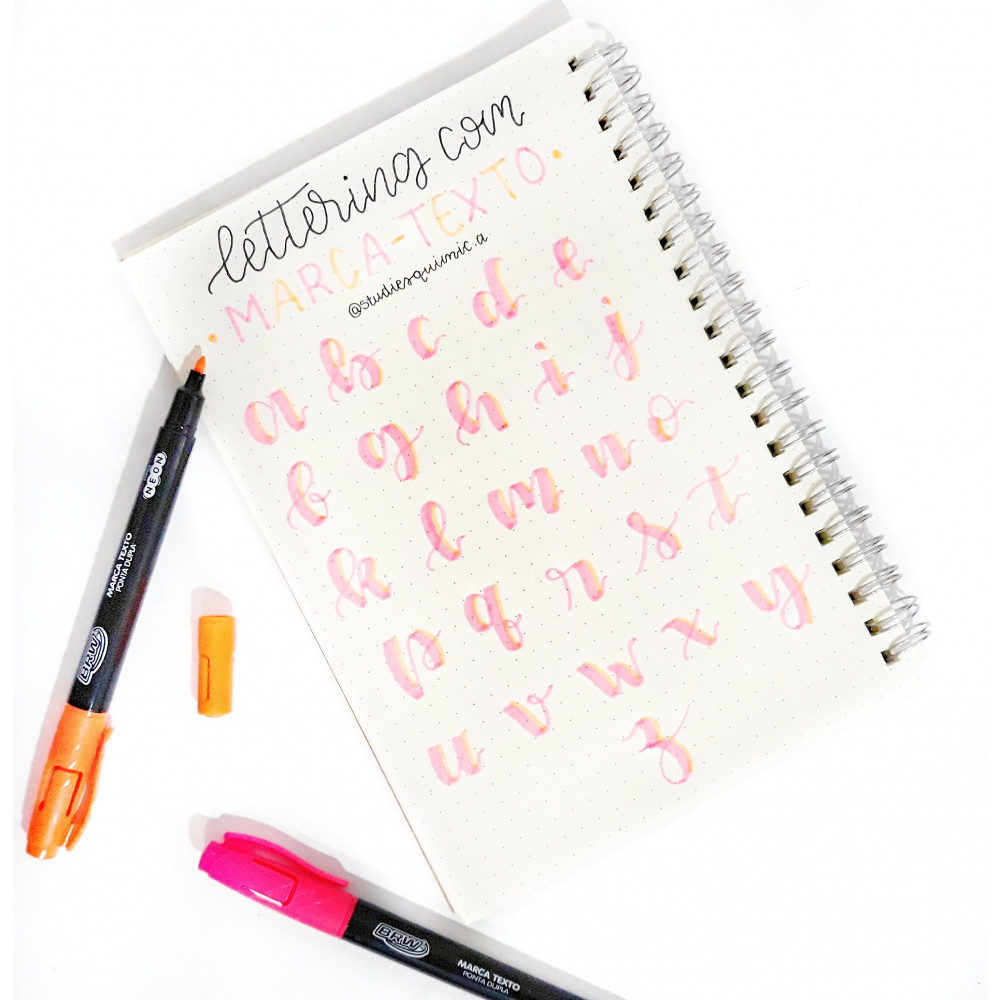 lettering com
MARCA-TEXTO
@studiesquimic.a
a b c d e
f g h i j
k l m n o
p q r s t
u v w x y
z
NEON
MARCA TEXTO
PONTA DUPLA
BRW
BRW
MARCA TEXTO
PONTA DUPLA